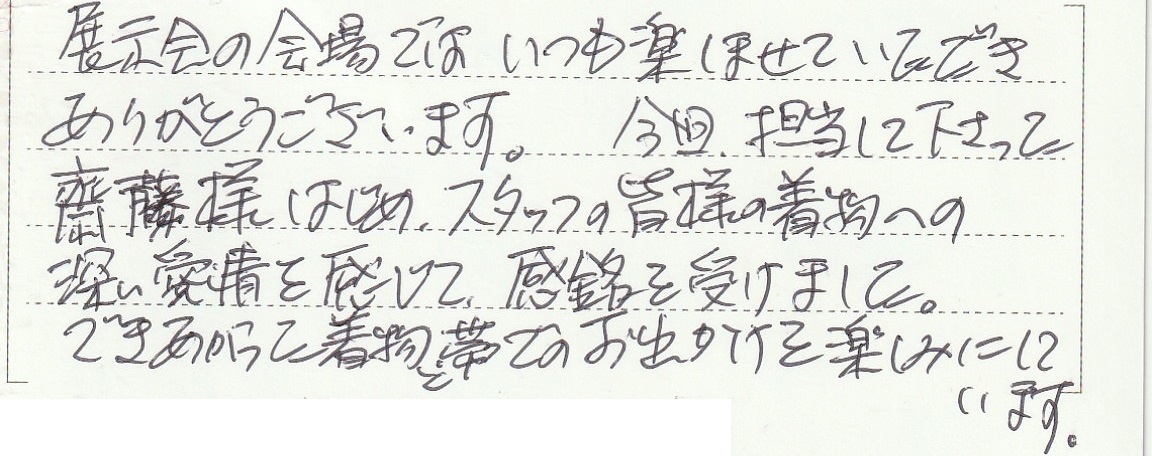 展示会の会場では いつも楽しませていただき
ありがとうございます。 今回、担当して下さって
齋藤様はじめ、スタッフの皆様の着物への
深い愛情を感じて、感銘を受けました。
できあがった着物と帯でのお出かけを楽しみにして
います。